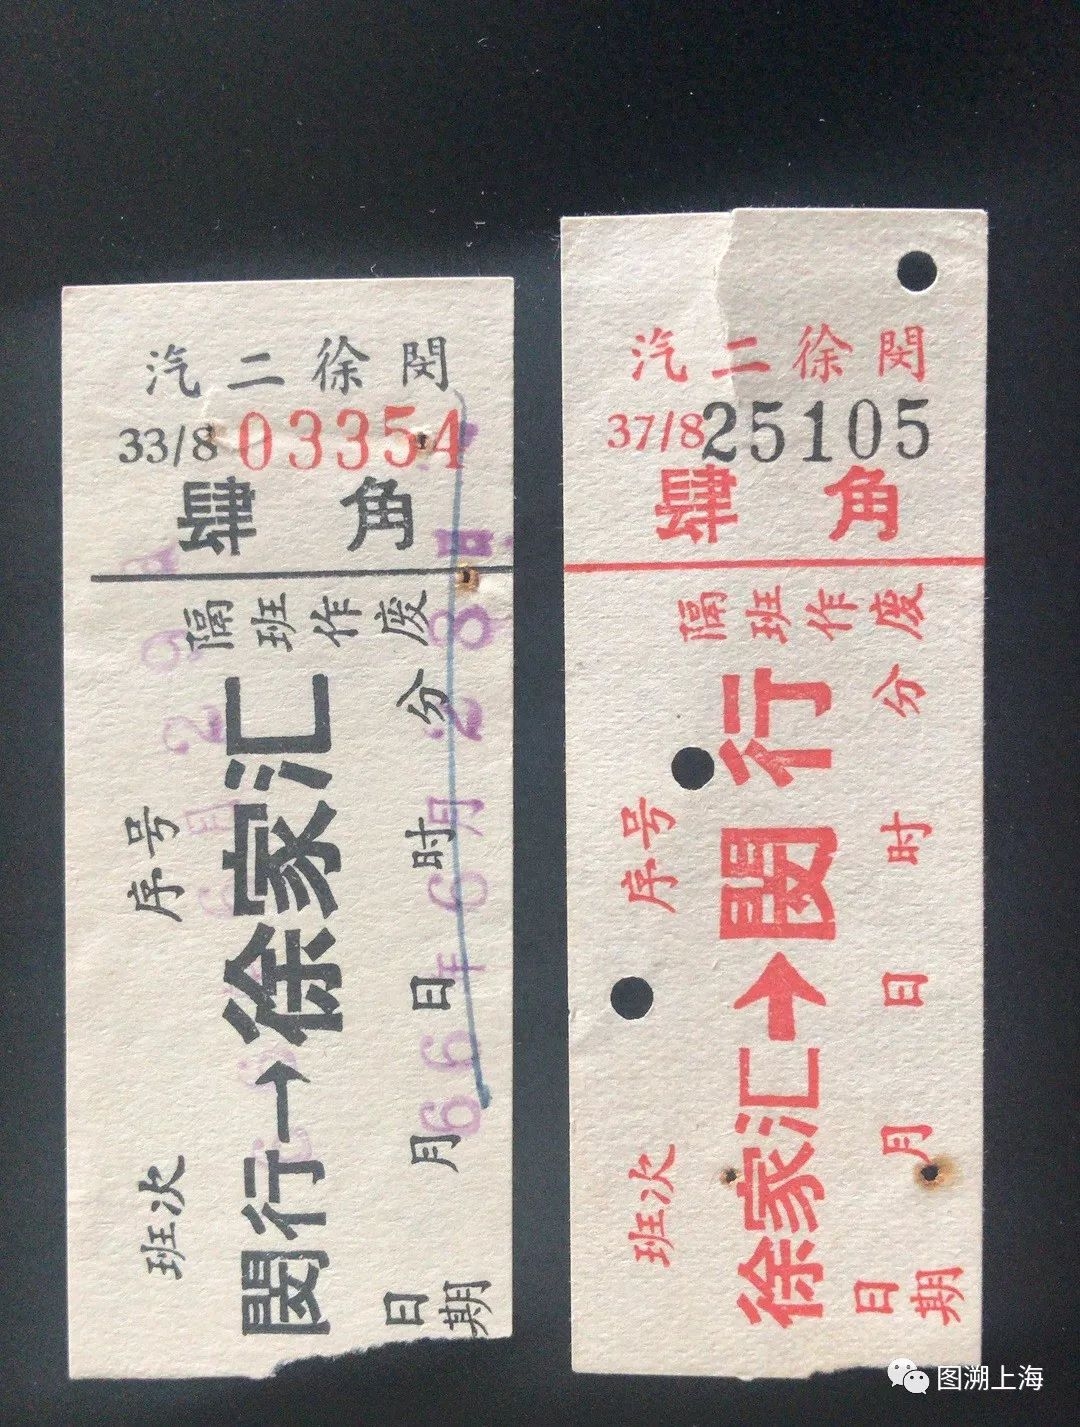 汽二徐閔
33/8 03354
肆角
隔班作废
閔行→徐家汇
班次 序号
日期 月 日 时 分
66年6月28日
汽二徐閔
37/8 25105
肆角
隔班作废
徐家汇→閔行
班次 序号
日期 月 日 时 分
图溯上海